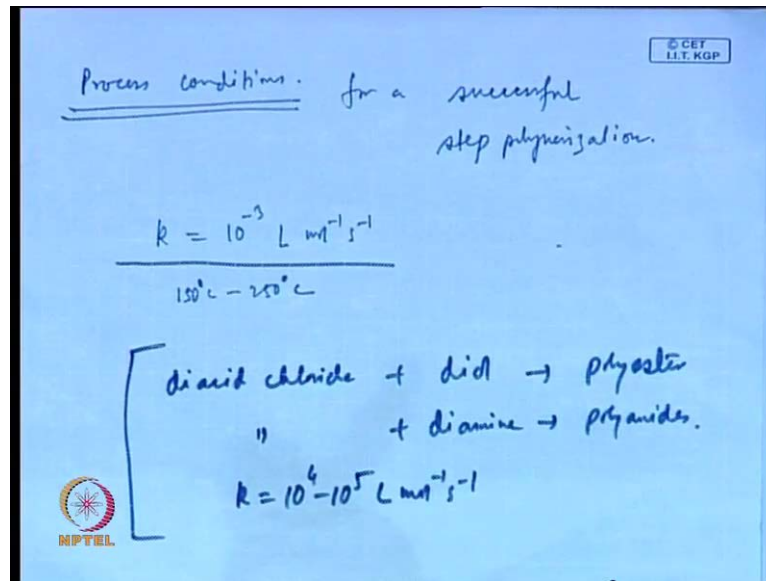 © CET
I.I.T. KGP
Process conditions. for a successful
step polymerization.
k = 10⁻³ L mol⁻¹ s⁻¹
150°C – 250°C
diacid chloride + diol → polyester
" + diamine → polyamides.
k = 10⁴–10⁵ L mol⁻¹ s⁻¹
NPTEL